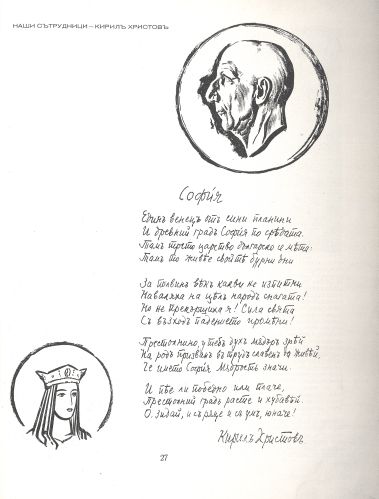 НАШИ СЪТРУДНИЦИ — КИРИЛЪ ХРИСТОВЪ
СОФИЯ
Единъ венецъ отъ сини планини
И древний градъ София по срѣдата.
Тамъ трето царство българско и мѣта:
Тамъ то живѣе своитѣ бурни дни
За половинъ вѣкъ какви не изпитни
Навалиха на цѣлъ народъ снагата!
Но не прекършиха я! Сила свята
Съ възходъ падението промѣни!
Престолнино, у тебъ духъ мѫдъръ зрѣй
На родъ призванъ въ трудъ славенъ да живѣй,
Че името София Мѫдрость значи.
И пѣе ли победно или плаче,
Престолний градъ расте и хубавѣй.
О, зидай, и сърдце и съ умъ, юначе!
Кирилъ Христовъ
27